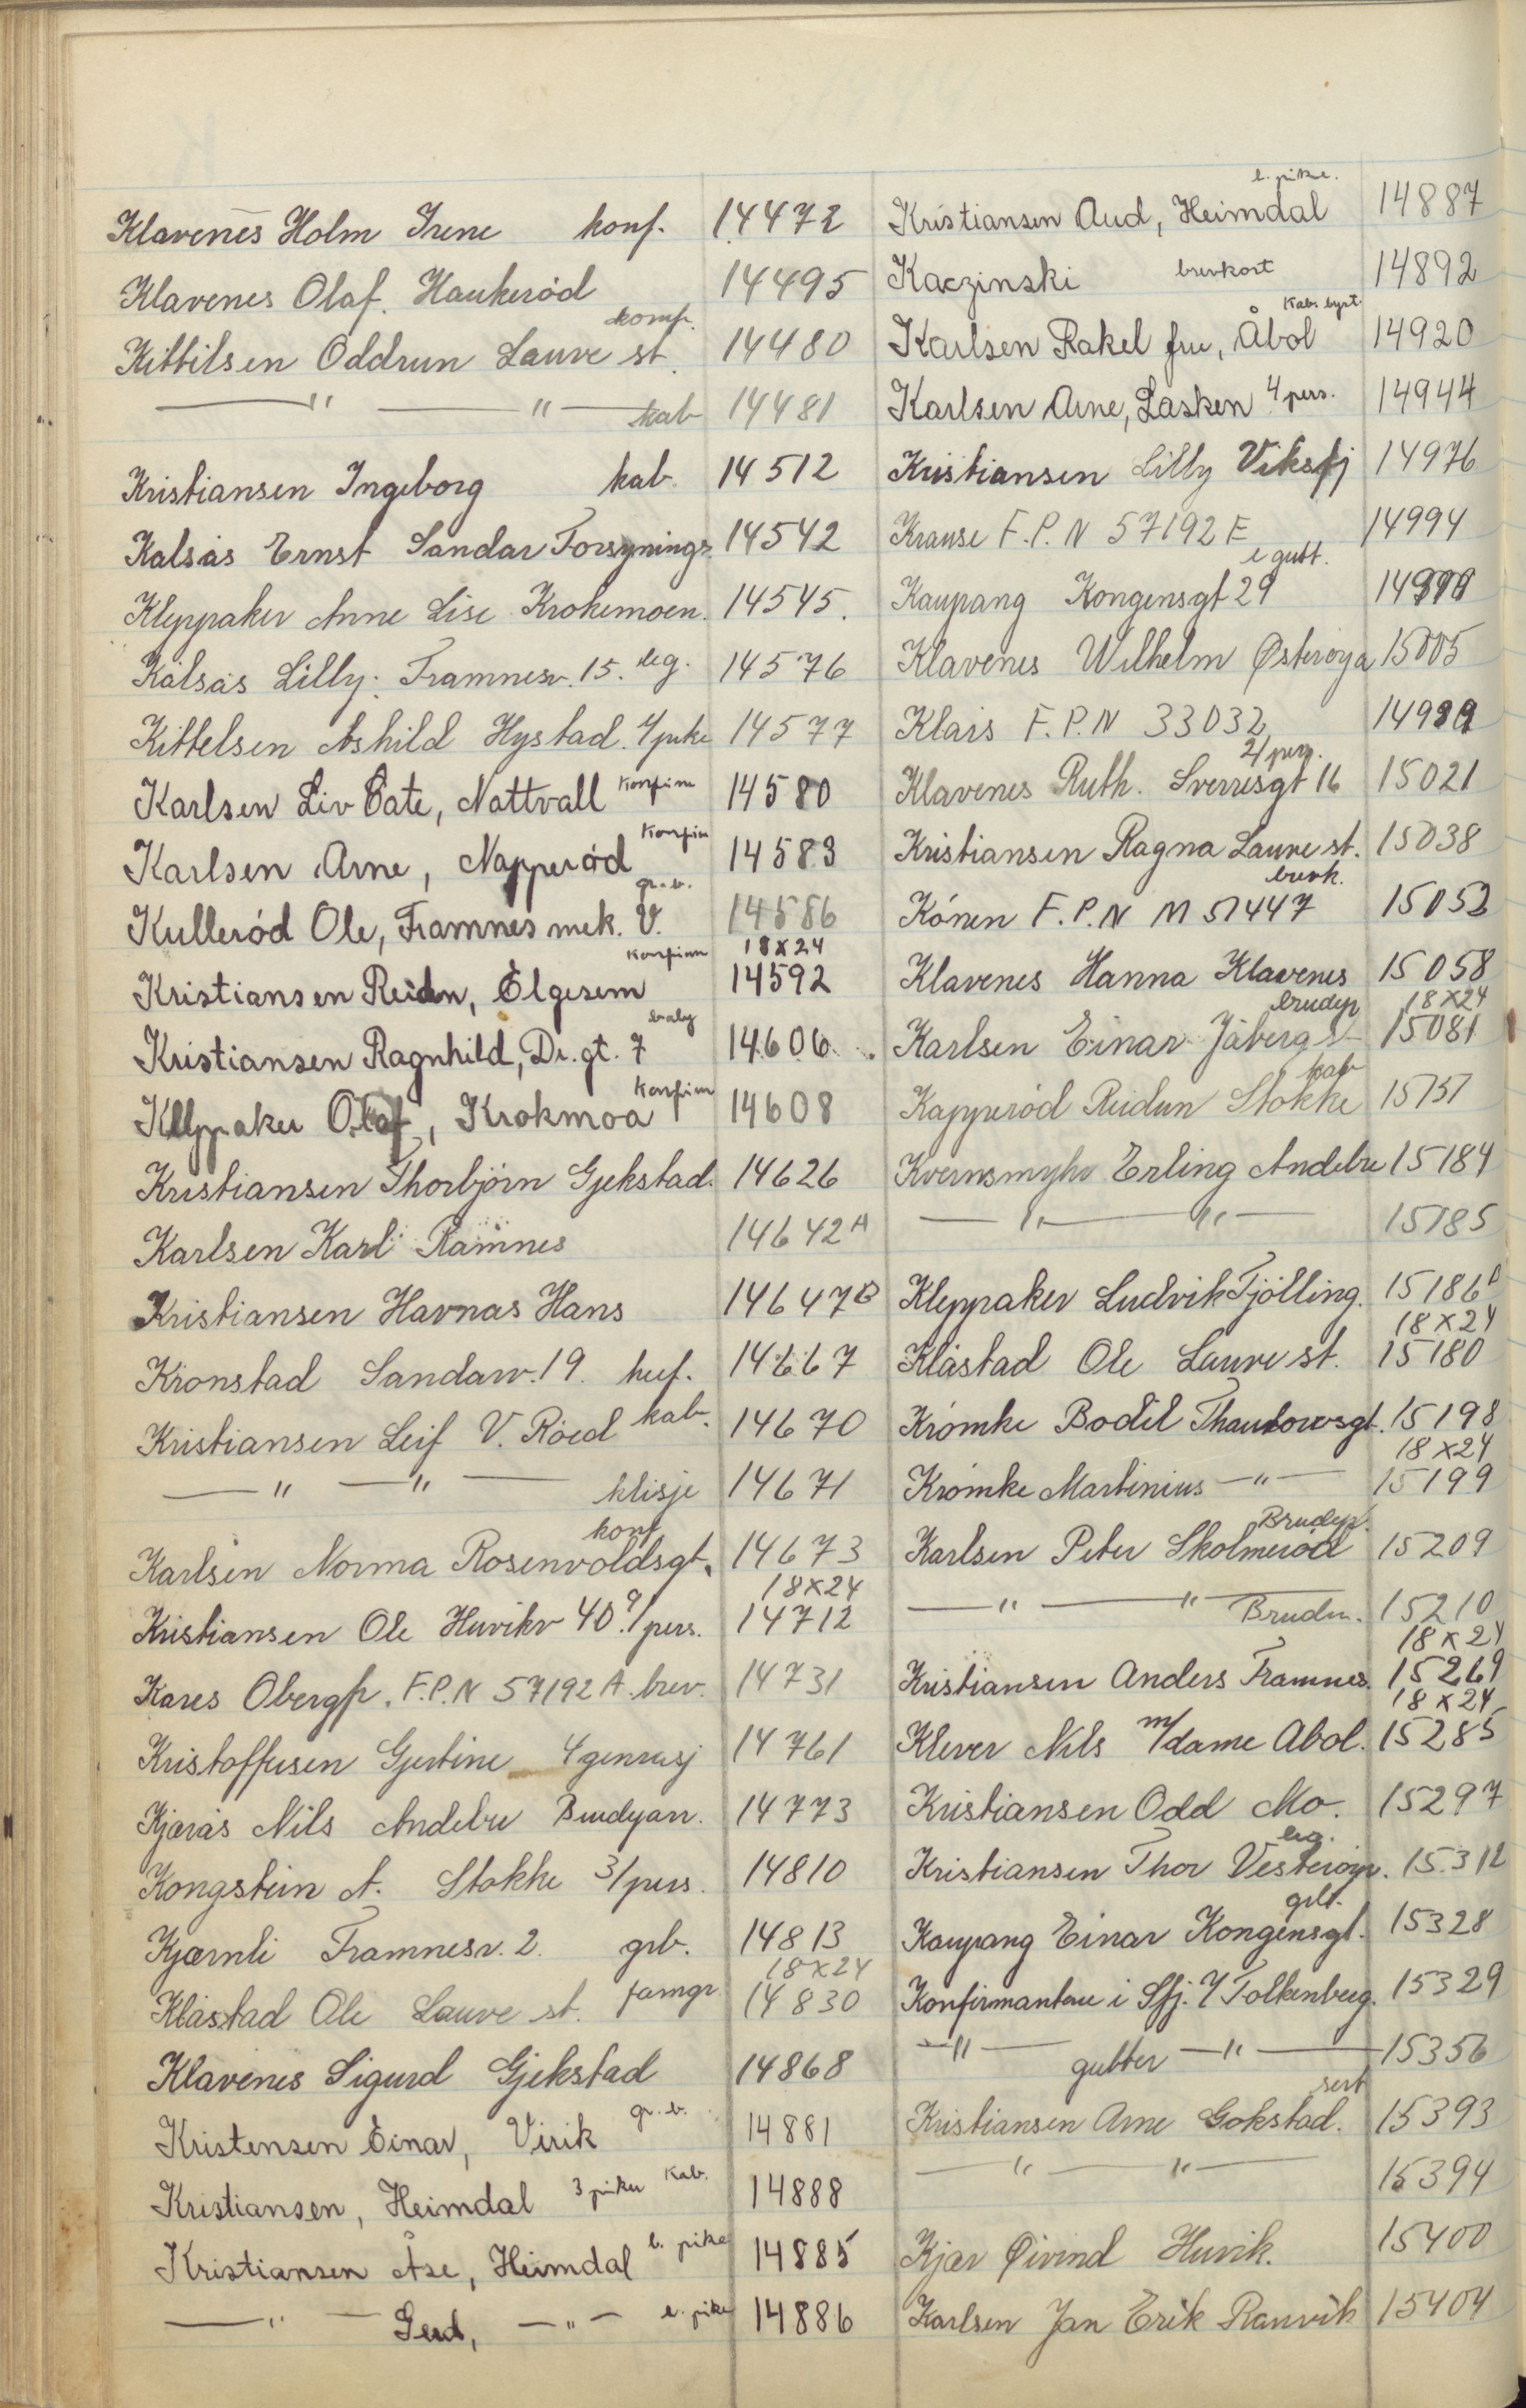 Klavenes Holm Irene konf. 14472
Klavenes Olaf. Haukerød 14495
Kittilsen Oddrun Lauve st. konf. 14480
— " — " — kab 14481
Kristiansen Ingeborg kab. 14512
Kalsås Ernst Sandar Forsynings. 14542
Kleppaker Anne Lise Krokemoen. 14545.
Kalsås Lilly. Framnesv. 15. leg. 14576
Kittelsen Ashild Hystad. 14577
Karlsen Liv Cate, Nattvall Konfirm 14580
Karlsen Arne, Napperød Konfirm 14583
Kullerød Ole, Framnes mek. V. gr.b. 14586
18x24
Kristiansen Reidun, Elgesem Konfirm 14592
Kristiansen Ragnhild, Dr. gt. 7 baby 14606
Kleppaker Olaf, Krokmoa Konfirm 14608
Kristiansen Thorbjörn Gjekstad. 14626
Karlsen Karl Ramnes 14642A
Kristiansen Havnas Hans 14647B
Kronstad Sandarv. 19. 14667
Kristiansen Leif V. Röed kab. 14670
— " — " — klisje 14671
Karlsen Norma Rosenvoldsgt. konf 14673
18x24
Kristiansen Ole Huvikv 40. 9/pers. 14712
Kares Obergfr. F.P.N 57192 A brev. 14731
Kristoffersen Gjertine 14761
Kjærås Nils Andebu Brudepar. 14773
Kongstein A. Stokke 3/pers. 14810
Kjærnli Framnesv. 2. grb. 14813
18x24
Klåstad Ole Lauve st. famgr 14830
Klavenes Sigurd Gjekstad 14868
Kristensen Einar, Virik gr.b. 14881
Kristiansen, Heimdal 3 piker Kab. 14888
Kristiansen Åse, Heimdal l. pike 14885
— " — Gerd, — " — l. pike 14886
Kristiansen Aud, Heimdal l. pike. 14887
Kaczinski brevkort 14892
Karlsen Rakel fru, Åbol Kab. byst. 14920
Karlsen Arne, Lasken 4 pers. 14944
Kristiansen Lilly Viksfj 14976
Krause F.P.N 57192 E 14994
Kaupang Kongensgt 29 l gutt.
Klavenes Wilhelm Østerøya 15005
Klais F.P.N 33032
Klavenes Ruth. Sverresgt 16 2/pers. 15021
Kristiansen Ragna Lauve st. 15038
Kónen F.P.N M 51447 brevk. 15052
Klavenes Hanna Klavenes 15058
18x24
Karlsen Einar Jåberg st brudep 15081
Kapperød Reidun Stokke kab 15151
Kvernsmyhr Erling Andebu 15184
— " — " — 15185
Kleppaker Ludvik Tjölling. 15186B
18x24
Klåstad Ole Lauve st. 15180
Krömke Bodil Thaulowsgt. 15198
18x24
Krömke Martinius — " — 15199
Karlsen Peter Skolmerød Brudep. 15209
— " — " — Brudn. 15210
18x24
Kristiansen Anders Framnes. 15269
18x24
Klever Nils m/dame Åbol. 15285
Kristiansen Odd Mo. 15297
Kristiansen Thor Vesterøyv. leg. 15312
Kaupang Einar Kongensgt. grb. 15328
Konfirmanter i Sfj. 15329
— " — gutter — " — 15356
Kristiansen Arne Gokstad. sert 15393
— " — " — 15394
Kjær Øivind Huvik. 15400
Karlsen Jan Erik Ranvik 15404